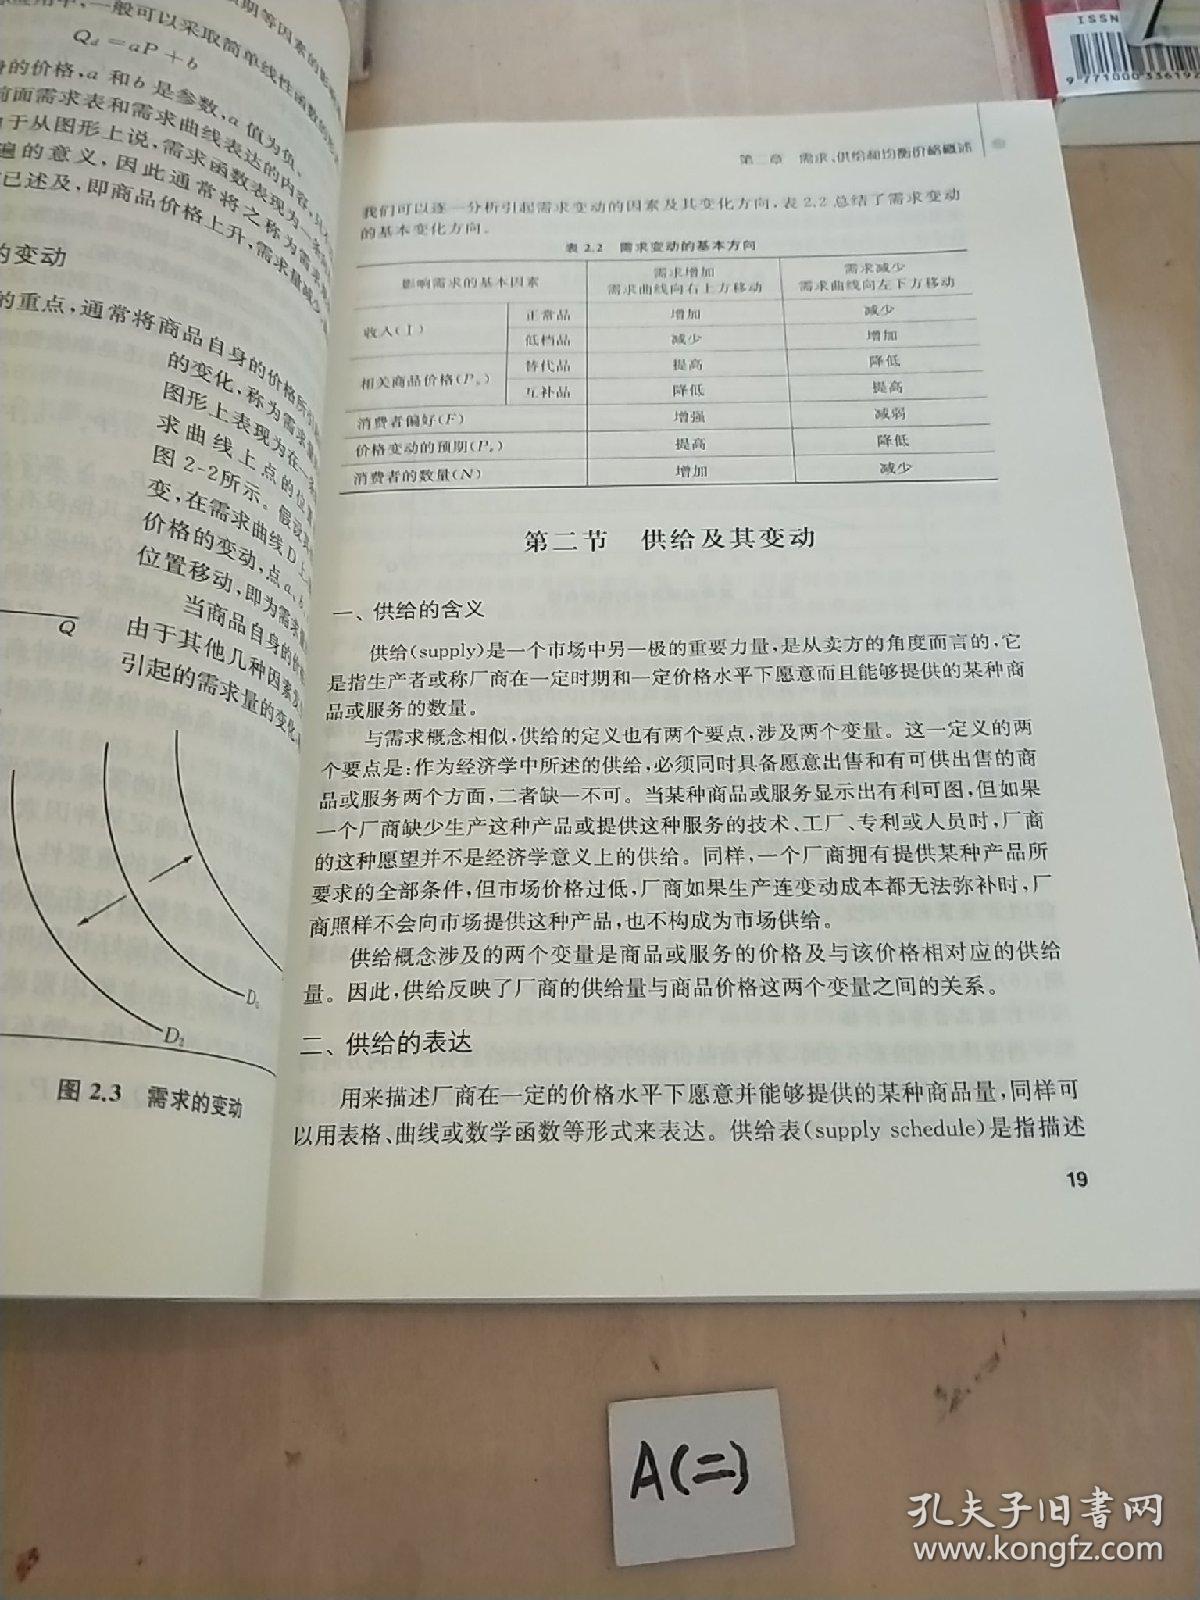 一般可以采取简单线性函数的
Qd=aP+b
的价格,a 和 b 是参数,a 值为负。
前面需求表和需求曲线表达的内容,
于从图形上说,需求函数表现为一条
遍的意义,因此通常将之称为需求
已述及,即商品价格上升,需求量减少
的变动
的重点,通常将商品自身的价格所引
的变化,称为需求量
图形上表现为在一条
求曲线上点的位置
图 2-2所示。假设其
变,在需求曲线D上
价格的变动,点a、b、
位置移动,即为需求量
Q
当商品自身的价格
由于其他几种因素
引起的需求量的变化
D1
D2
图 2.3 需求的变动
第二章 需求、供给和均衡价格概述
我们可以逐一分析引起需求变动的因素及其变化方向,表 2.2 总结了需求变动
的基本变化方向。
表 2.2 需求变动的基本方向
影响需求的基本因素 需求增加 需求曲线向右上方移动 需求减少 需求曲线向左下方移动
收入(I) 正常品 增加 减少
低档品 减少 增加
相关商品价格(P) 替代品 提高 降低
互补品 降低 提高
消费者偏好(F) 增强 减弱
价格变动的预期(Pe) 提高 降低
消费者的数量(N) 增加 减少
第二节 供给及其变动
一、供给的含义
供给(supply)是一个市场中另一极的重要力量,是从卖方的角度而言的,它
是指生产者或称厂商在一定时期和一定价格水平下愿意而且能够提供的某种商
品或服务的数量。
与需求概念相似,供给的定义也有两个要点,涉及两个变量。这一定义的两
个要点是:作为经济学中所述的供给,必须同时具备愿意出售和有可供出售的商
品或服务两个方面,二者缺一不可。当某种商品或服务显示出有利可图,但如果
一个厂商缺少生产这种产品或提供这种服务的技术、工厂、专利或人员时,厂商
的这种愿望并不是经济学意义上的供给。同样,一个厂商拥有提供某种产品所
要求的全部条件,但市场价格过低,厂商如果生产连变动成本都无法弥补时,厂
商照样不会向市场提供这种产品,也不构成为市场供给。
供给概念涉及的两个变量是商品或服务的价格及与该价格相对应的供给
量。因此,供给反映了厂商的供给量与商品价格这两个变量之间的关系。
二、供给的表达
用来描述厂商在一定的价格水平下愿意并能够提供的某种商品量,同样可
以用表格、曲线或数学函数等形式来表达。供给表(supply schedule)是指描述
19
ISSN
9 771000 336192
A(二)
孔夫子旧书网
www.kongfz.com